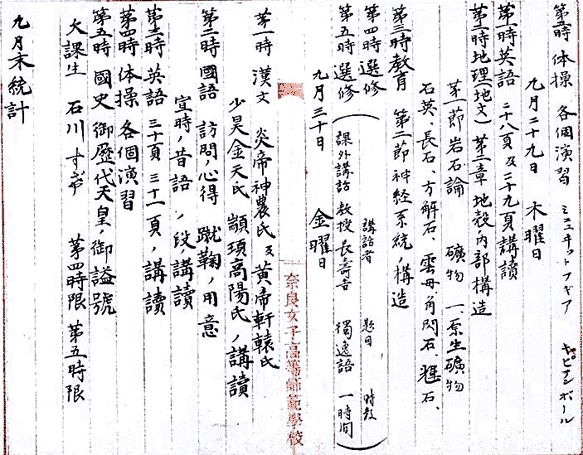 第五時 体操 演習 ミニュエット フギア キャピアンボール
九月二十九日 木曜日
第一時 英語 二十八頁及二十九頁講讀
第二時 地理(地文) 第二章 地殻内部構造
第一節 岩石論 礦物 一原生礦物
石英、長石、方解石、雲母、角閃石、輝石、
第三時 教育 第二節 神経系統ノ構造
第四時 選修
第五時 選修
講話者 題目 時数
課外講話 教授長寿吉 獨逸語 一時間
九月三十日 金曜日
奈良女子高等師範學校
第一時 漢文 炎帝神農氏及黄帝軒轅氏
少昊金天氏 顓頊高陽氏ノ講讀
第二時 國語 訪問ノ心得 蹴鞠ノ用意
宣時ノ昔語ノ段講讀
第三時 英語 三十頁 三十一頁ノ講讀
第四時 体操 各個演習
第五時 國史 御歴代天皇ノ御諡號
欠課生 石川すぎ 第四時限 第五時限
九月末統計